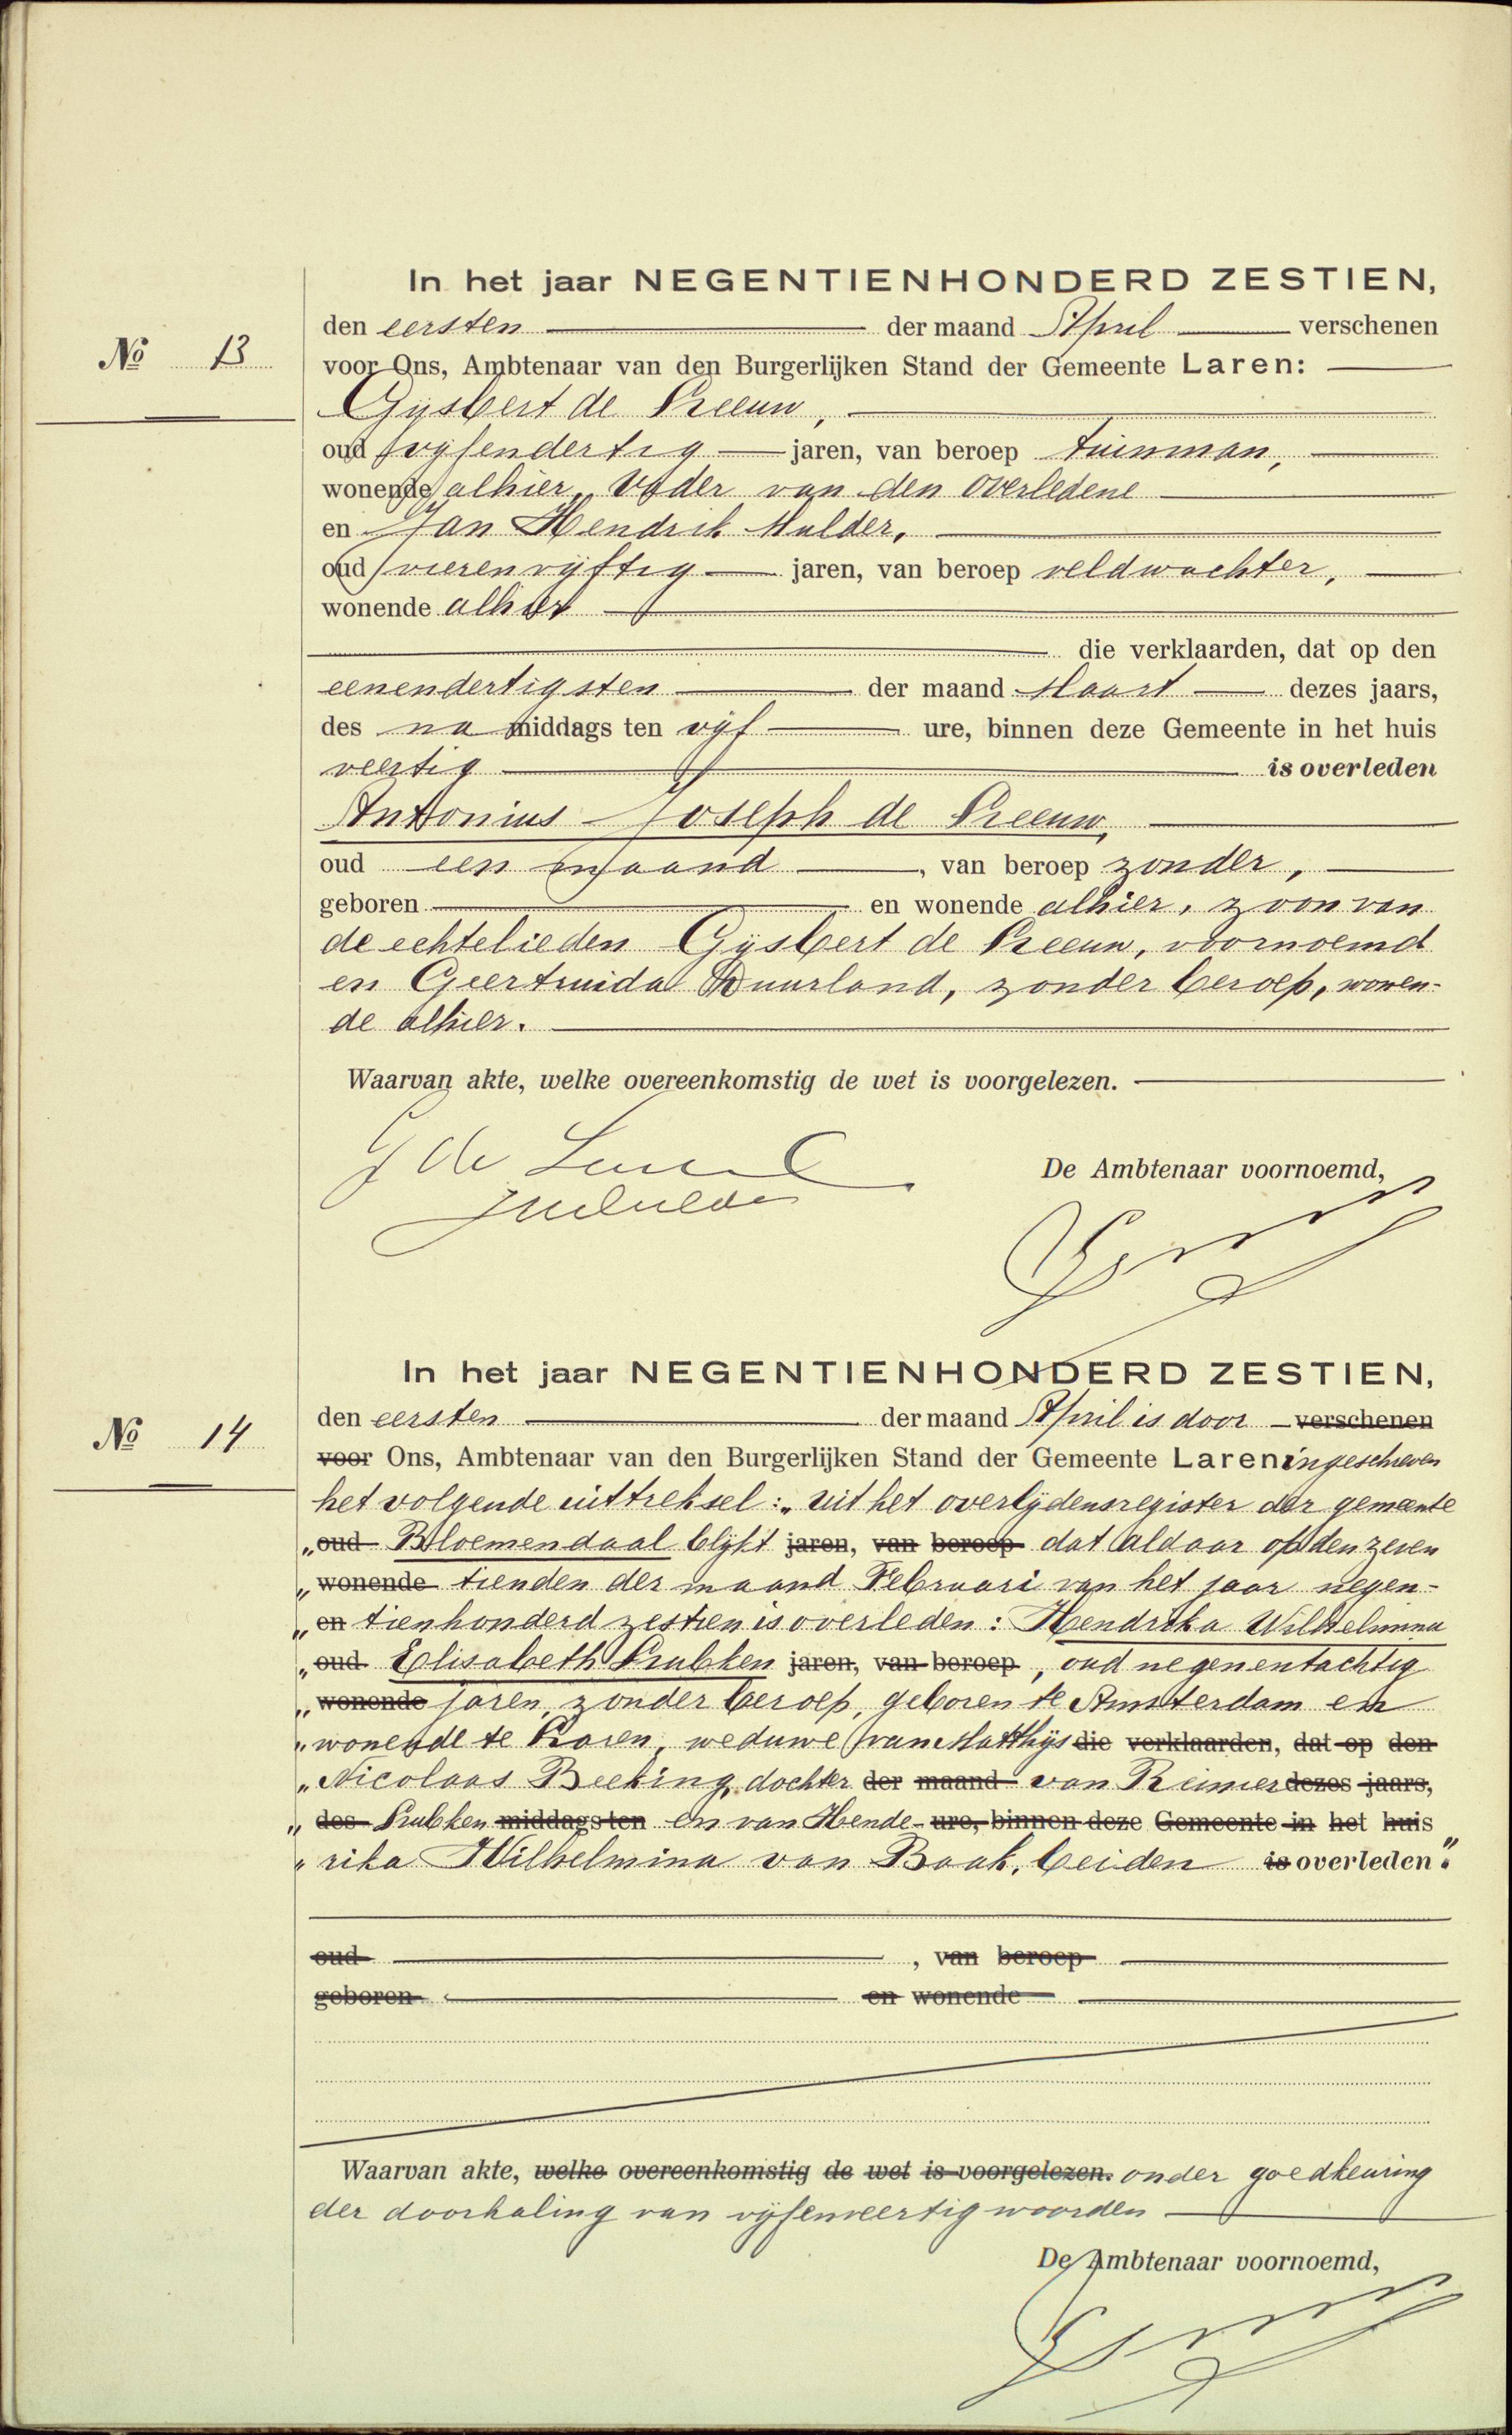 In het jaar NEGENTIENHONDERD ZESTIEN,
den eersten der maand April verschenen
No 13
voor Ons, Ambtenaar van den Burgerlijken Stand der Gemeente Laren:
Gijsbert de Leeuw,
oud vijfendertig jaren, van beroep tuinman,
wonende alhier, vader van den overledene
en Jan Hendrik Mulder,
oud vierenvijftig jaren, van beroep veldwachter,
wonende alhier
die verklaarden, dat op den
eenendertigsten der maand Maart dezes jaars,
des na middags ten vijf ure, binnen deze Gemeente in het huis
veertig is overleden
Antonius Joseph de Leeuw,
oud een maand, van beroep zonder,
geboren en wonende alhier, zoon van
de echtelieden Gijsbert de Leeuw, voornoemd
en Geertruida Duurland, zonder beroep, wonen-
de alhier.
Waarvan akte, welke overeenkomstig de wet is voorgelezen.
G de Leeuw
De Ambtenaar voornoemd,
JHMulder
In het jaar NEGENTIENHONDERD ZESTIEN,
den eersten der maand April is door verschenen
No 14
voor Ons, Ambtenaar van den Burgerlijken Stand der Gemeente Laren ingeschreven
het volgende uittreksel: „Uit het overlijdensregister der gemeente
„oud Bloemendaal blijkt jaren, van beroep dat aldaar op den zeven
„wonende tienden der maand Februari van het jaar negen-
„en tienhonderd zestien is overleden: Hendrika Wilhelmina
„oud Elisabeth Krubken jaren, van beroep, oud negenentachtig
„wonende jaren, zonder beroep, geboren te Amsterdam en
„wonende te Laren, weduwe van Matthijs die verklaarden, dat op den
„Nicolaas Beeking, dochter der maand van Reinier dezes jaars,
„des Krubken middags ten en van Hende- ure, binnen deze Gemeente in het huis
„rika Wilhelmina van Baak, beiden is overleden."
oud , van beroep
geboren en wonende
Waarvan akte, welke overeenkomstig de wet is voorgelezen. onder goedkeuring
der doorhaling van vijfenveertig woorden
De Ambtenaar voornoemd,